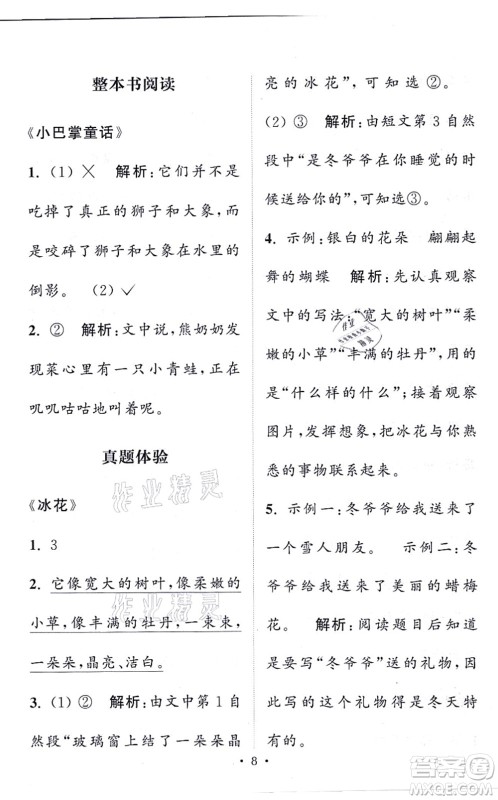 整本书阅读
《小巴掌童话》
1. (1) ✕　解析:它们并不是
吃掉了真正的狮子和大象,而
是咬碎了狮子和大象在水里的
倒影。　(2) ✓
2. ②　解析:文中说,熊奶奶发
现菜心里有一只小青蛙,正在
叽叽咕咕地叫着歌呢。
真题体验
《冰花》
1. 3
2. 它像宽大的树叶,像柔嫩的
小草,像丰满的牡丹,一束束,
一朵朵,晶亮、洁白。
3. (1) ②　解析:由文中第1自
然段“玻璃窗上结了一朵朵晶
亮的冰花”,可知选②。
(2) ③　解析:由短文第3自然
段中“是冬爷爷在你睡觉的时
候送给你的”,可知选③。
4. 示例:银白的花朵　翩翩起
舞的蝴蝶　解析:先认真观察
文中的写法:“宽大的树叶”“柔
嫩的小草”“丰满的牡丹”,用的
是“什么样的什么”;接着观察
图片,发挥想象,把冰花与你熟
悉的事物联系起来。
5. 示例一:冬爷爷给我送来了
一个雪人朋友。　示例二:冬
爷爷给我送来了美丽的蜡梅
花。　解析:阅读题目后知道
是要写“冬爷爷”送的礼物,因
此写的这个礼物得是冬天特有
的。
· 8 ·
作业精灵
作业精灵
答案圈
MXQE.COM